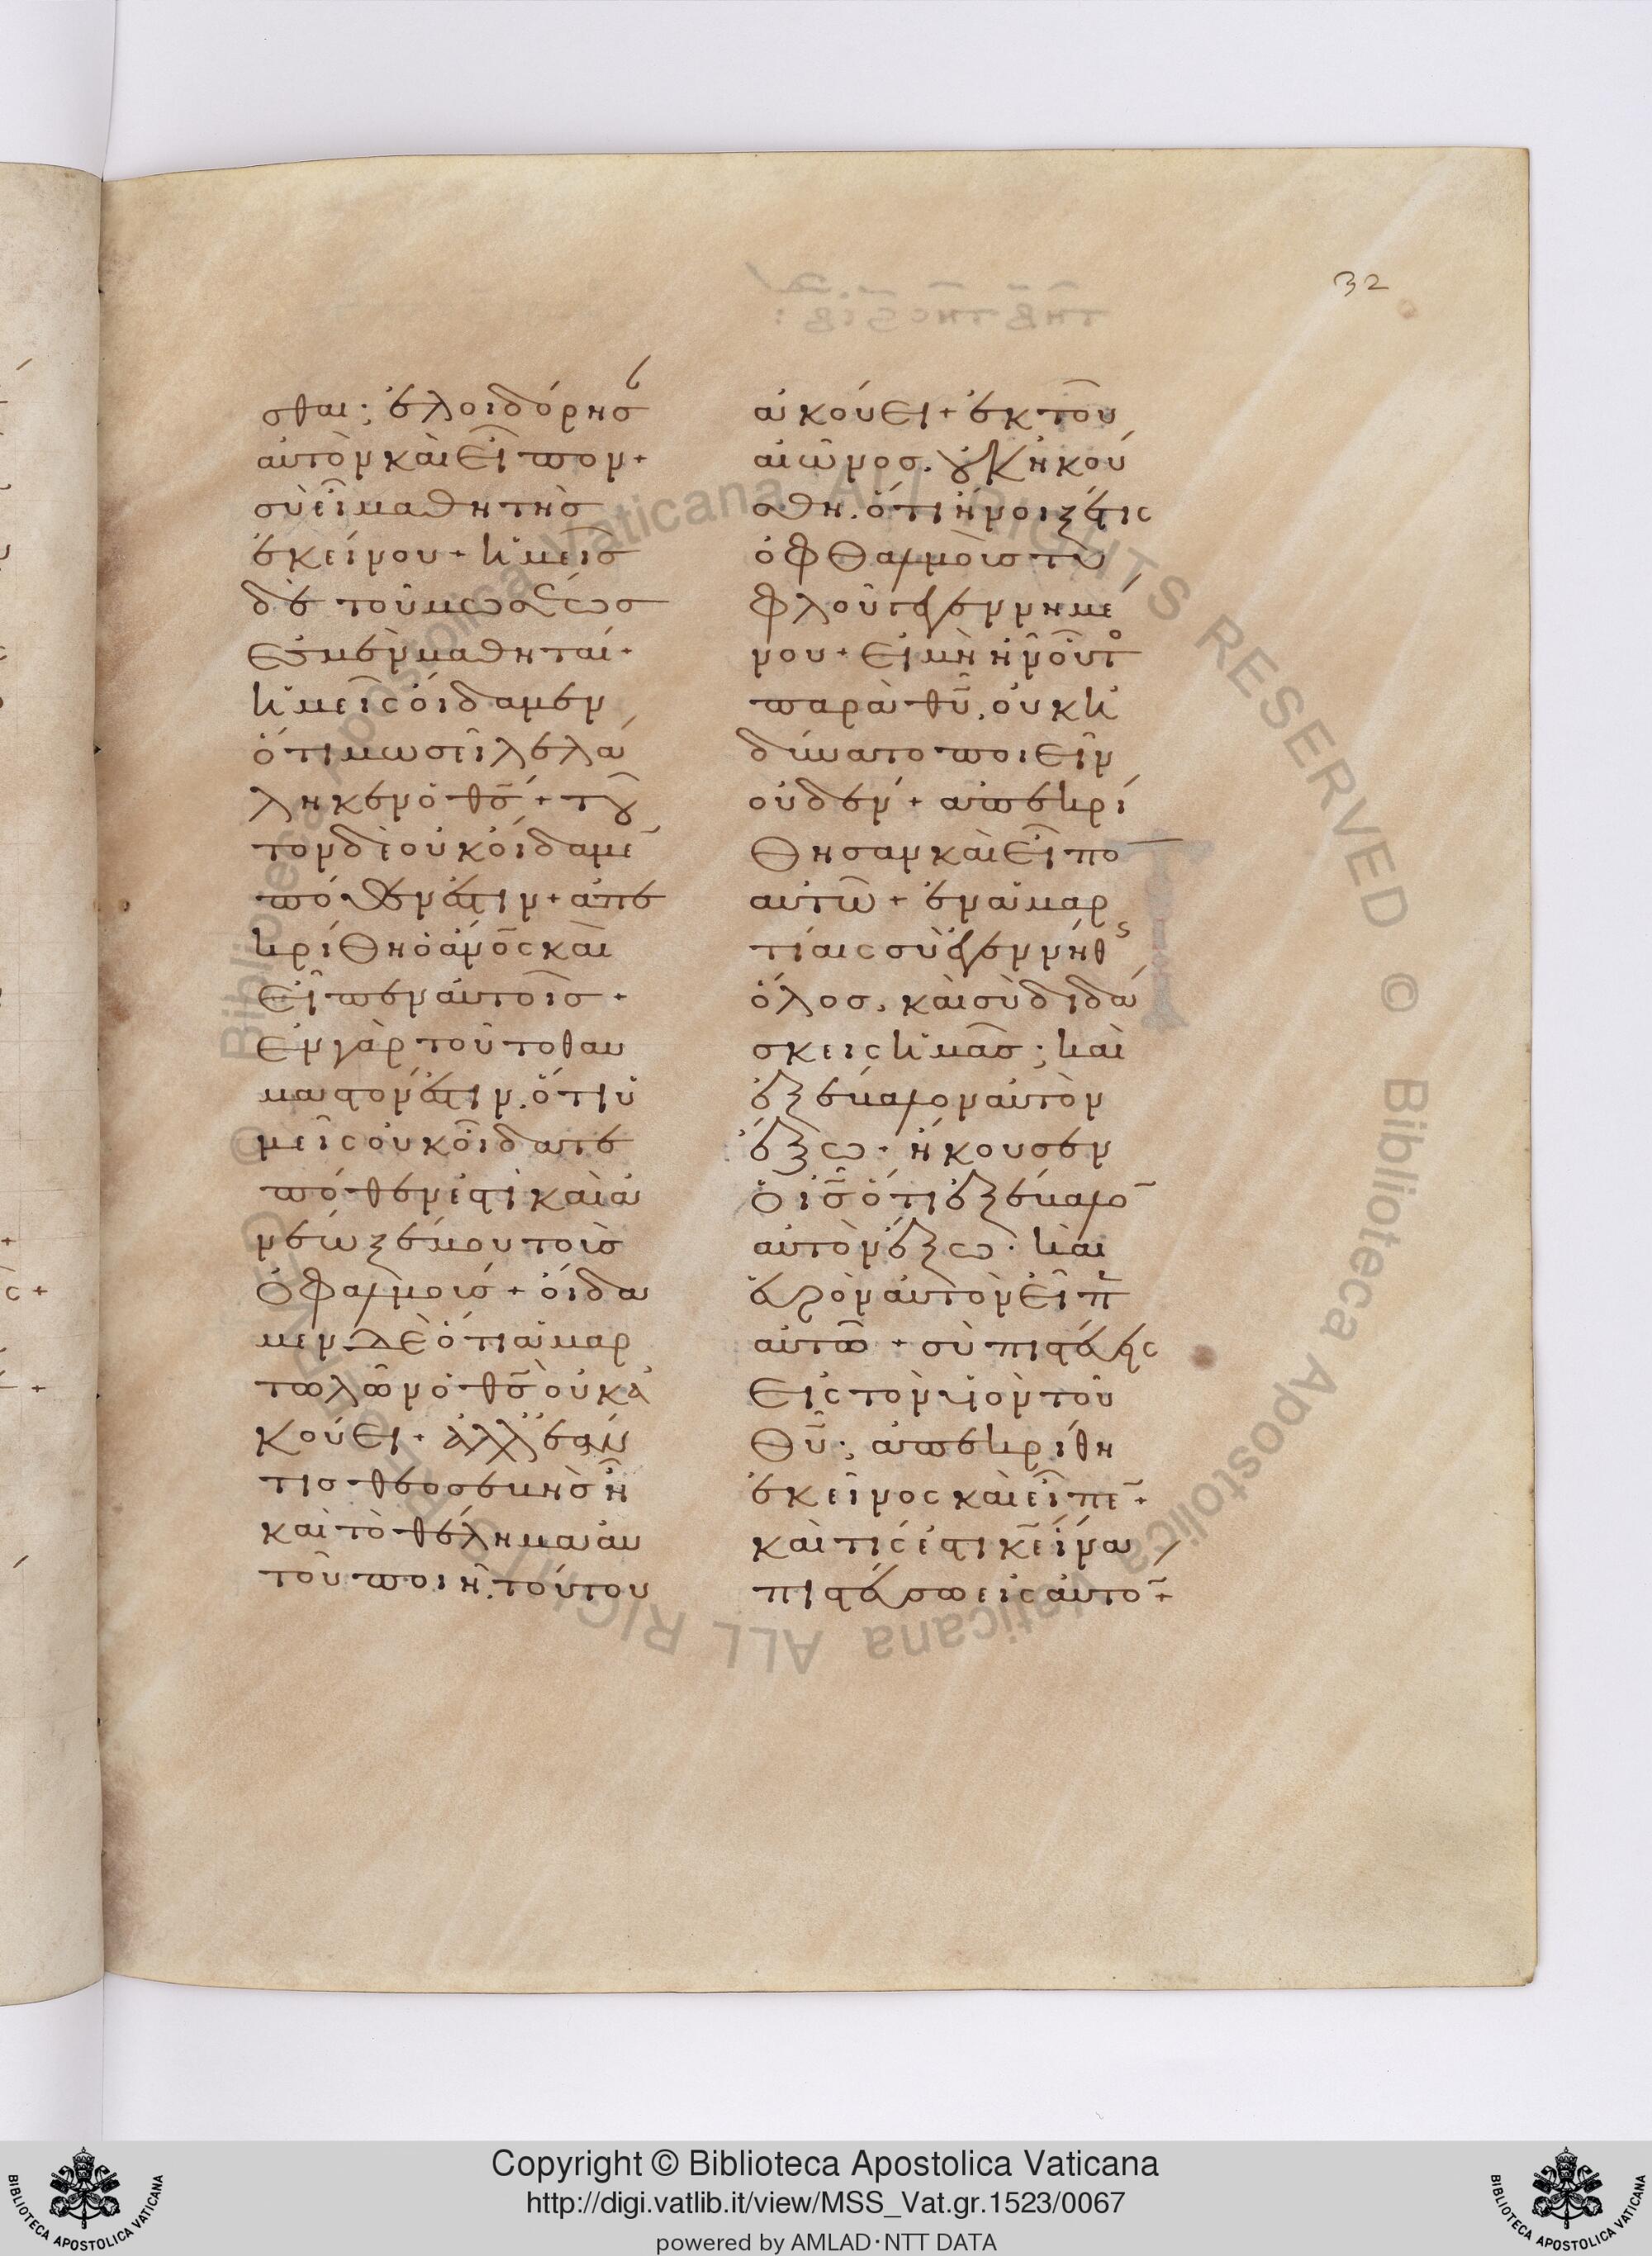 32
σθαι; ἐλοιδόρησ
αὐτὸν καὶ εἶπον +
σὺ εἶ μαθητὴσ
ἐκείνου + ἡμεῖσ
δὲ τοῦ μωσέωσ
ἐσμὲν μαθηταί ·
ἡμεῖς οἴδαμεν
ὅτι μωσεῖ λελά
ληκεν ὁ θσ̅ + τοῦ
τον δὲ οὐκ οἴδαμε̅
πόθεν ἐστιν + ἀπε
κρίθη ὁ ἀν̅ο̅ς καὶ
εἶπεν αὐτοῖσ +
ἐν γὰρ τοῦτο θαυ
μαστόν ἐστιν. ὅτι ὑ
μεῖς οὐκ οἴδατε
πόθεν ἐστὶ καὶ ἀ
νέωξέ μου τοὶσ
ὀφθαλμοίσ + οἴδα
μεν δὲ ὅτι ἁμαρ
τωλῶν ὁ θσ̅ οὐκ ἀ
κούει + ἀλλ' ἐάν
τισ θεοσεβὴσ ἦ
καὶ τὸ θέλημα αὐ
τοῦ ποιῆ. τούτου
ἀκούει + ἐκ τοῦ
αἰῶνοσ. οὐκ ἠκού
σθη. ὅτι ἤνοιξέ τις
ὀφθαλμοὶσ τυ
φλοῦ γεγεννημέ
νου + εἰ μὴ ἦν οὗτο
παρὰ θυ̅. οὐκ ἠ
δύνατο ποιεῖν
οὐδέν + ἀπεκρί
θησαν καὶ εἶπο
αὐτῶ + ἐν ἁμαρ
τίαις σὺ ἐγεννήθς
ὅλοσ. καὶ σὺ διδά
σκεις ἡμᾶσ; καὶ
ἐξέβαλον αὐτὸν
ἔξω · ἤκουσεν
ὁ ισ̅ ὅτι ἐξέβαλο̅
αὐτὸν ἔξω · καὶ
εὑρὸν αὐτὸν εἶπ
αὐτῶ + σὺ πιστεύεις
εἰς τὸν υἱὸν τοῦ
θυ̅; ἀπεκρίθη
ἐκεῖνος καὶ εἶπε̅ +
καὶ τίς ἐστι κ̅ε̅ ἵνα
πιστεύσω εἰς αὐτο̅ +
Copyright © Biblioteca Apostolica Vaticana
http://digi.vatlib.it/view/MSS_Vat.gr.1523/0067
powered by AMLAD·NTT DATA
BIBLIOTECA APOSTOLICA VATICANA
BIBLIOTECA APOSTOLICA VATICANA
© Biblioteca Apostolica Vaticana ALL RIGHTS RESERVED
© Biblioteca Apostolica Vaticana ALL RIGHTS RESERVED